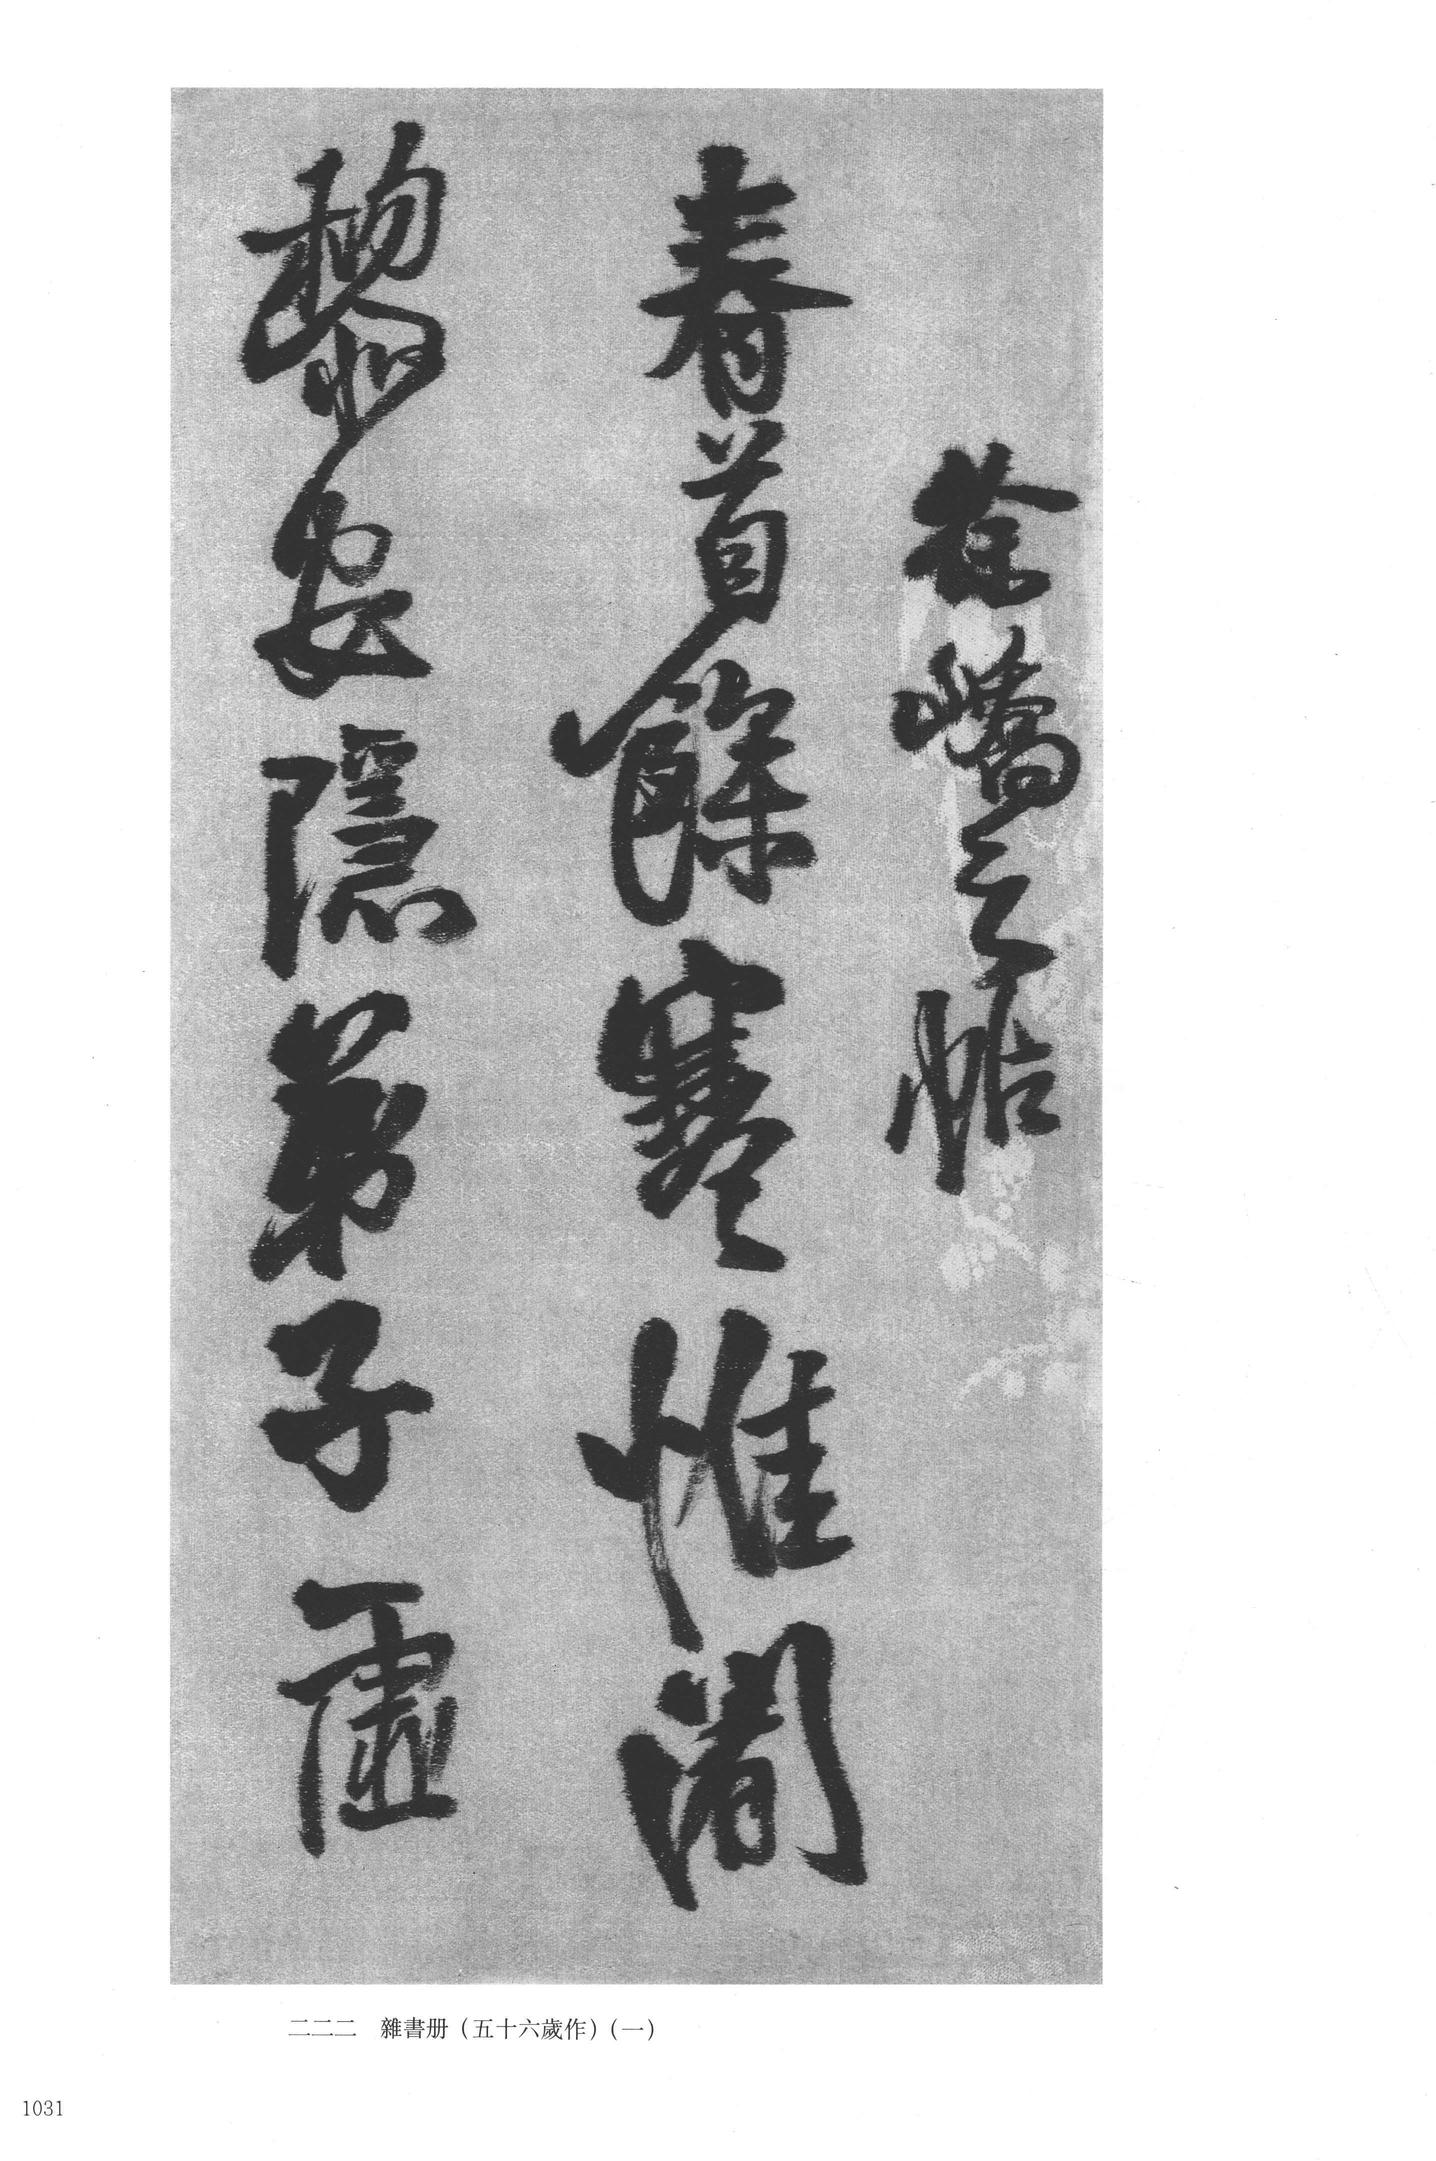 徐嶠之帖
春首餘寒惟闍
黎安隱弟子虛
二二二　雜書册（五十六歲作）（一）
1031